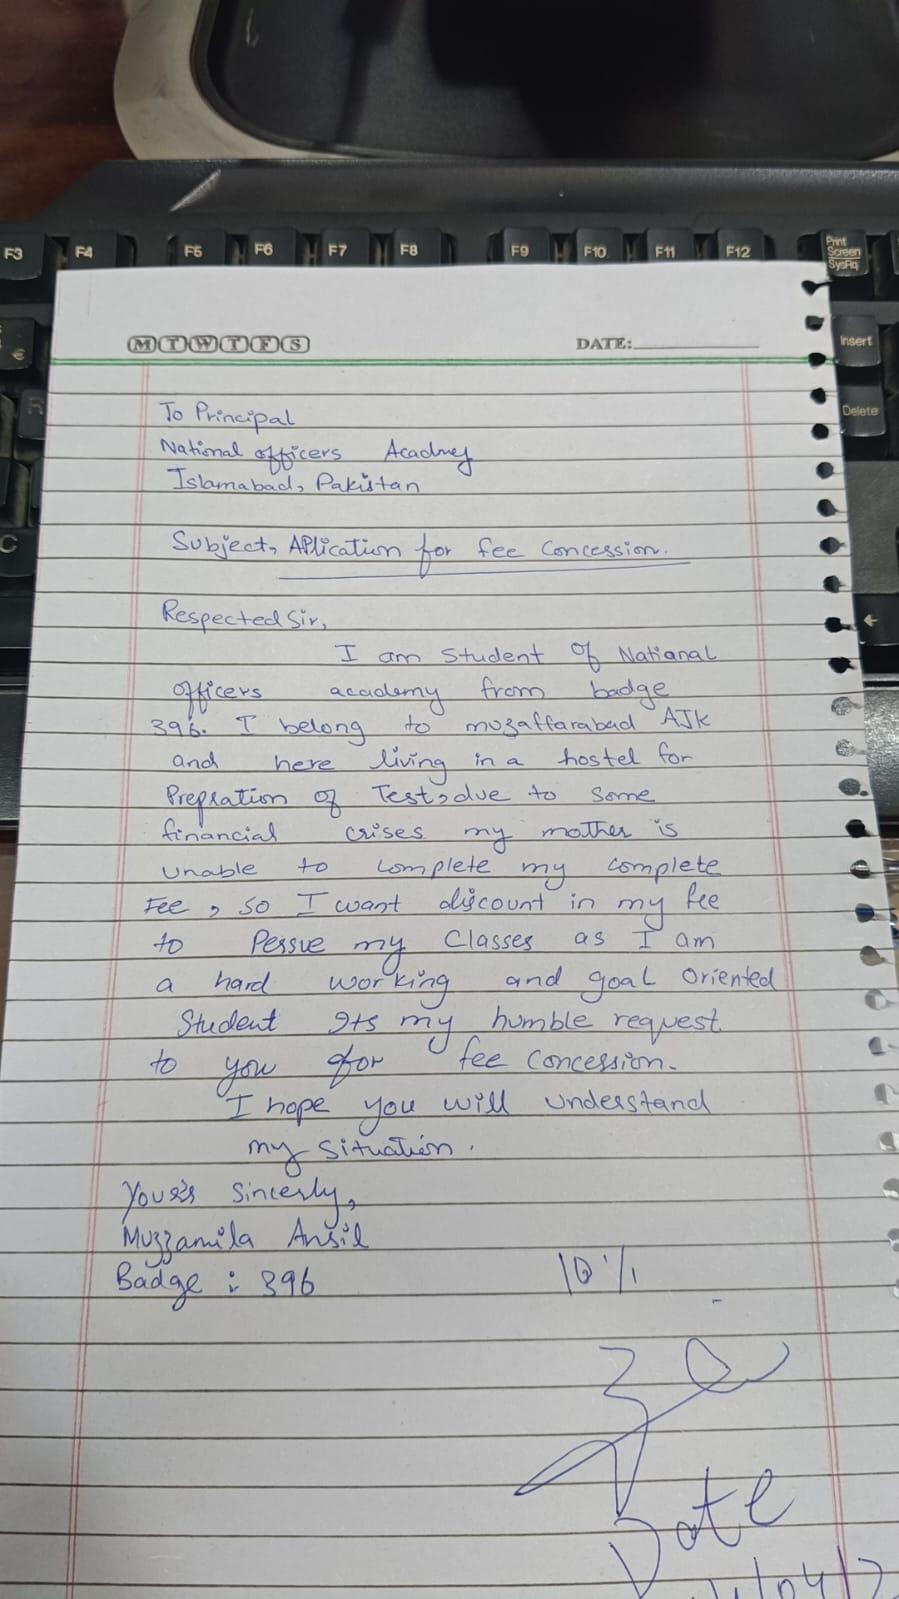 F3 F4 F5 F6 F7 F8 F9 F10 F11 F12 Print Screen SysRq
Insert
Delete
M T W T F S DATE:
To Principal
National officers Acadmey
Islamabad, Pakistan
Subject, APlication for fee Concession.
Respected Sir,
I am Student of National
officers academy from badge
396. I belong to muzaffarabad AJK
and here living in a hostel for
Prepration of Test, due to some
financial crises my mother is
unable to complete my complete
Fee, so I want discount in my fee
to Persue my Classes as I am
a hard working and goal oriented
Student Its my humble request
to you for fee concession.
I hope you will understand
my situation.
Your's Sincerly,
Muzzamila Ansil
Badge : 396
10%
Date